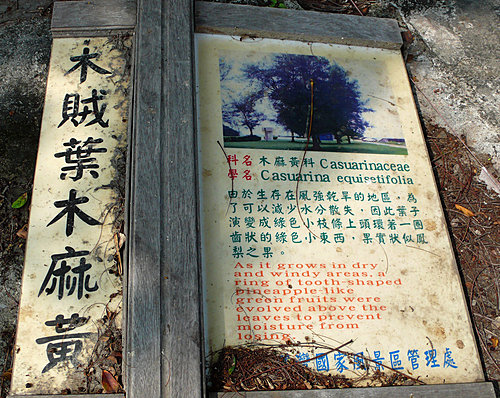 木賊葉木麻黃
科名 木麻黃科 Casuarinaceae
學名 Casuarina equisetifolia
由於生存在風強乾旱的地區，為
了可以減少水分散失，因此葉子
演變成綠色小枝條上頭環著一圈
齒狀的綠色小東西，果實狀似鳳
梨之果。
As it grows in dry
and windy areas, a
ring of tooth-shaped
pineapple-like
green fruits were
evolved above the
leaves to prevent
moisture from
losing.
國家風景區管理處